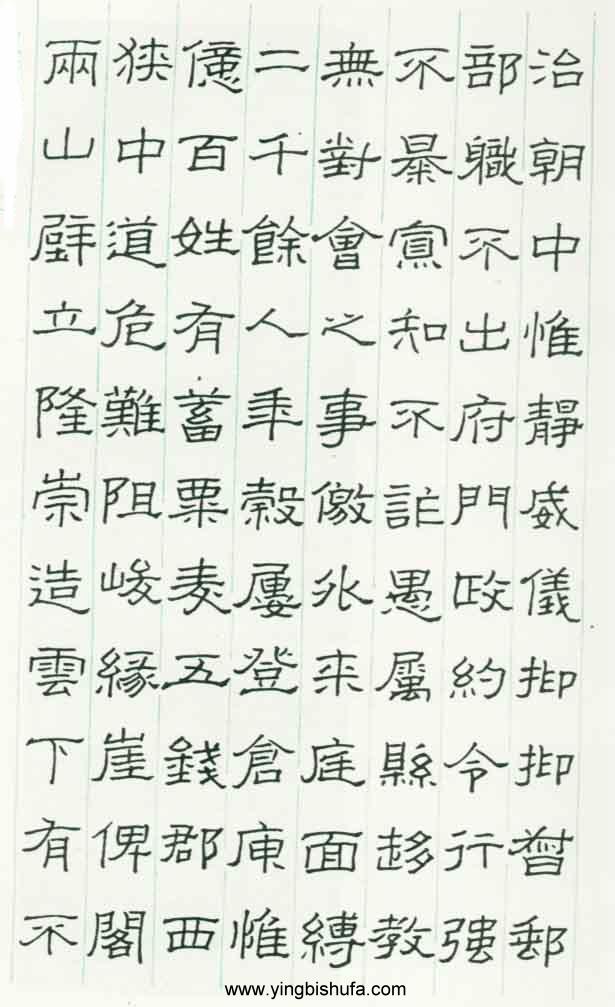 治朝中惟靜威儀抑抑督郵
部軄不出府門政約令行强
不暴寡知不詐愚屬縣趍教
無對會之事儌外来庭面縛
二千餘人年穀屢登倉庾惟
億百姓有蓄粟麦五錢郡西
狭中道危難阻峻緣崖俾閣
兩山壁立隆崇造雲下有不
www.yingbishufa.com